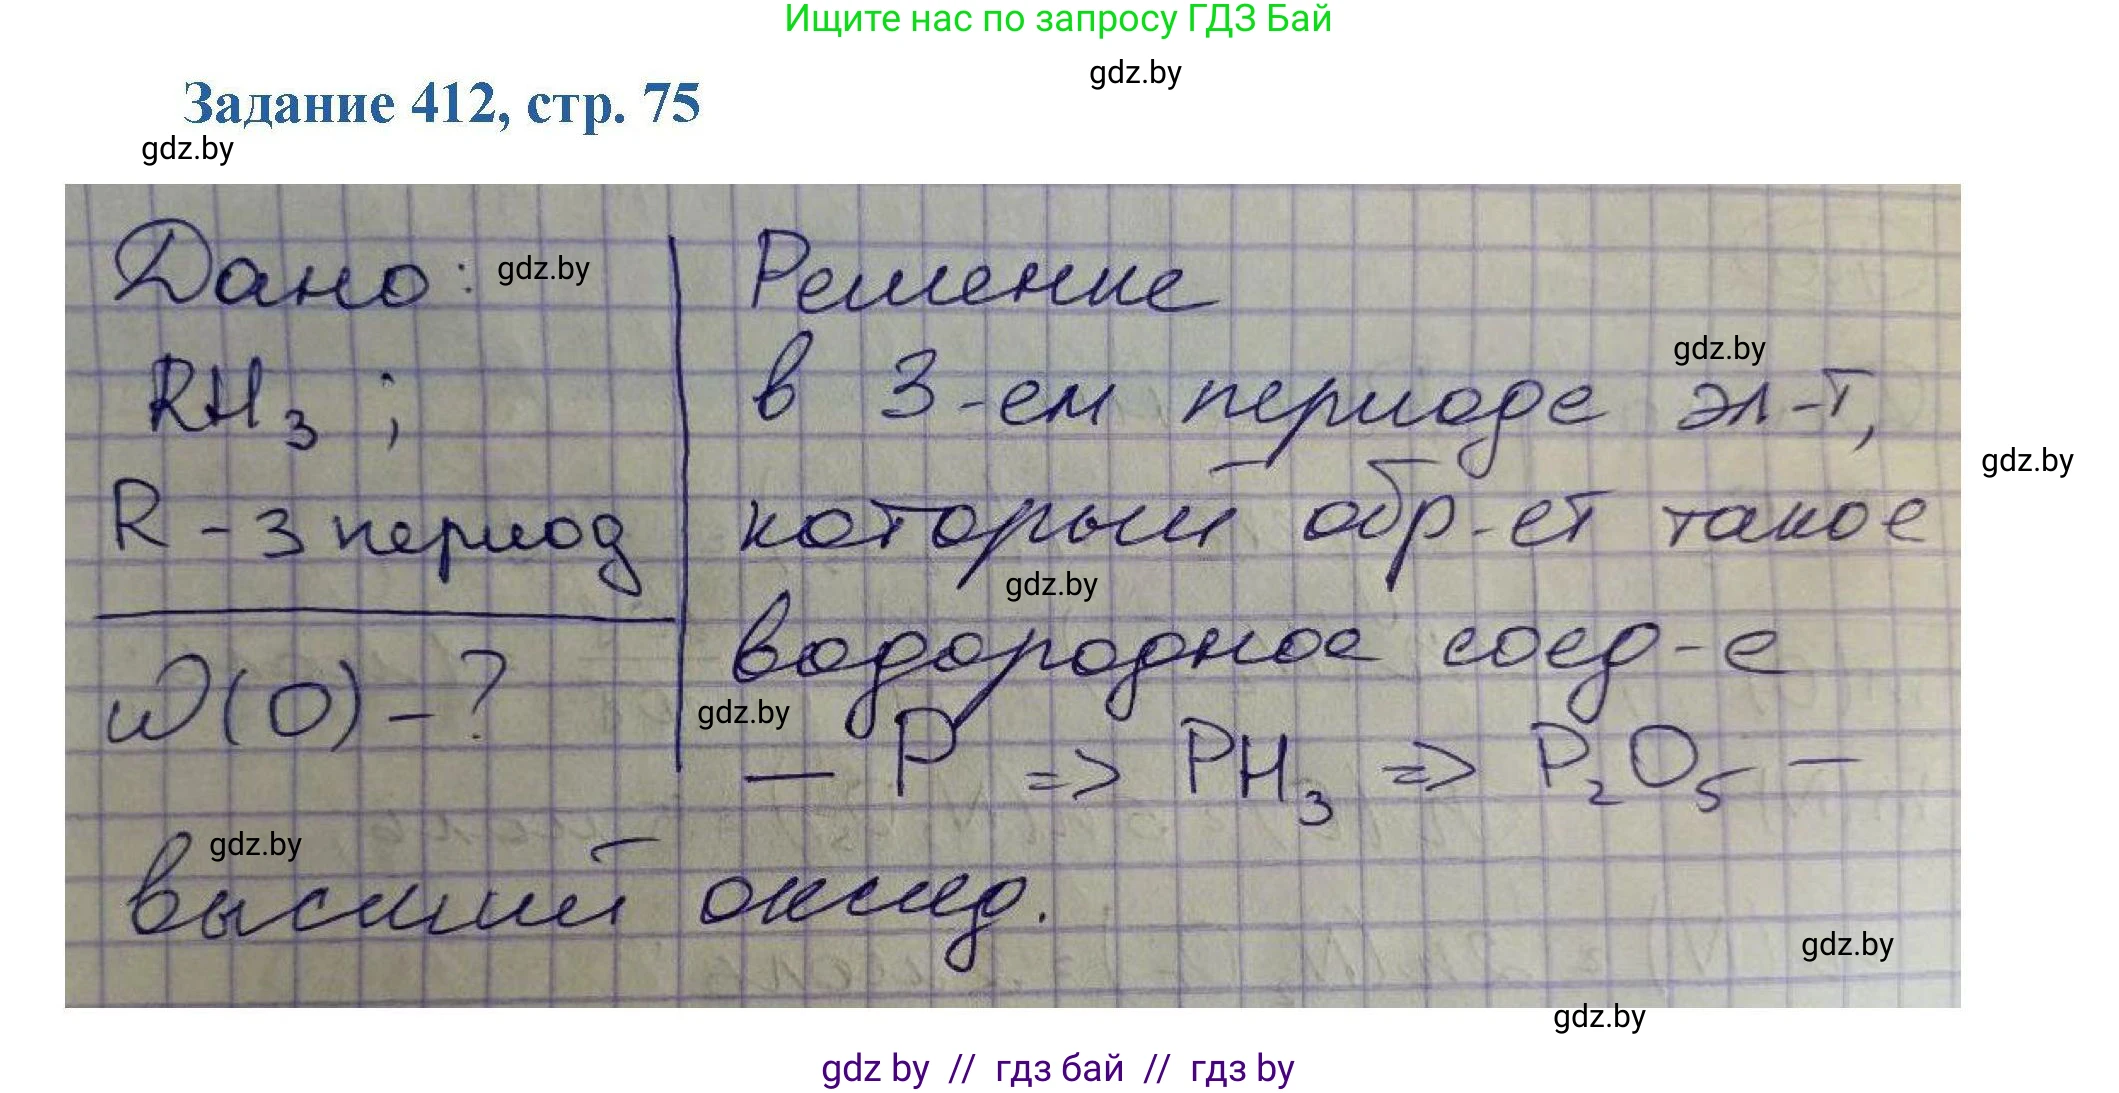 Ищите нас по запросу ГДЗ Бай
gdz.by
Задание 412, стр. 75
gdz.by
Дано: gdz.by
RH3 ;
R - 3 период
W(O) - ?
Решение
gdz.by
в 3-ем периоде эл-т,
gdz.by
который обр-ет такое
gdz.by
водородное соед-е
gdz.by
— P => PH3 => P2O5 —
gdz.by
высший оксид.
gdz.by
gdz.by
gdz by // гдз бай // гдз by